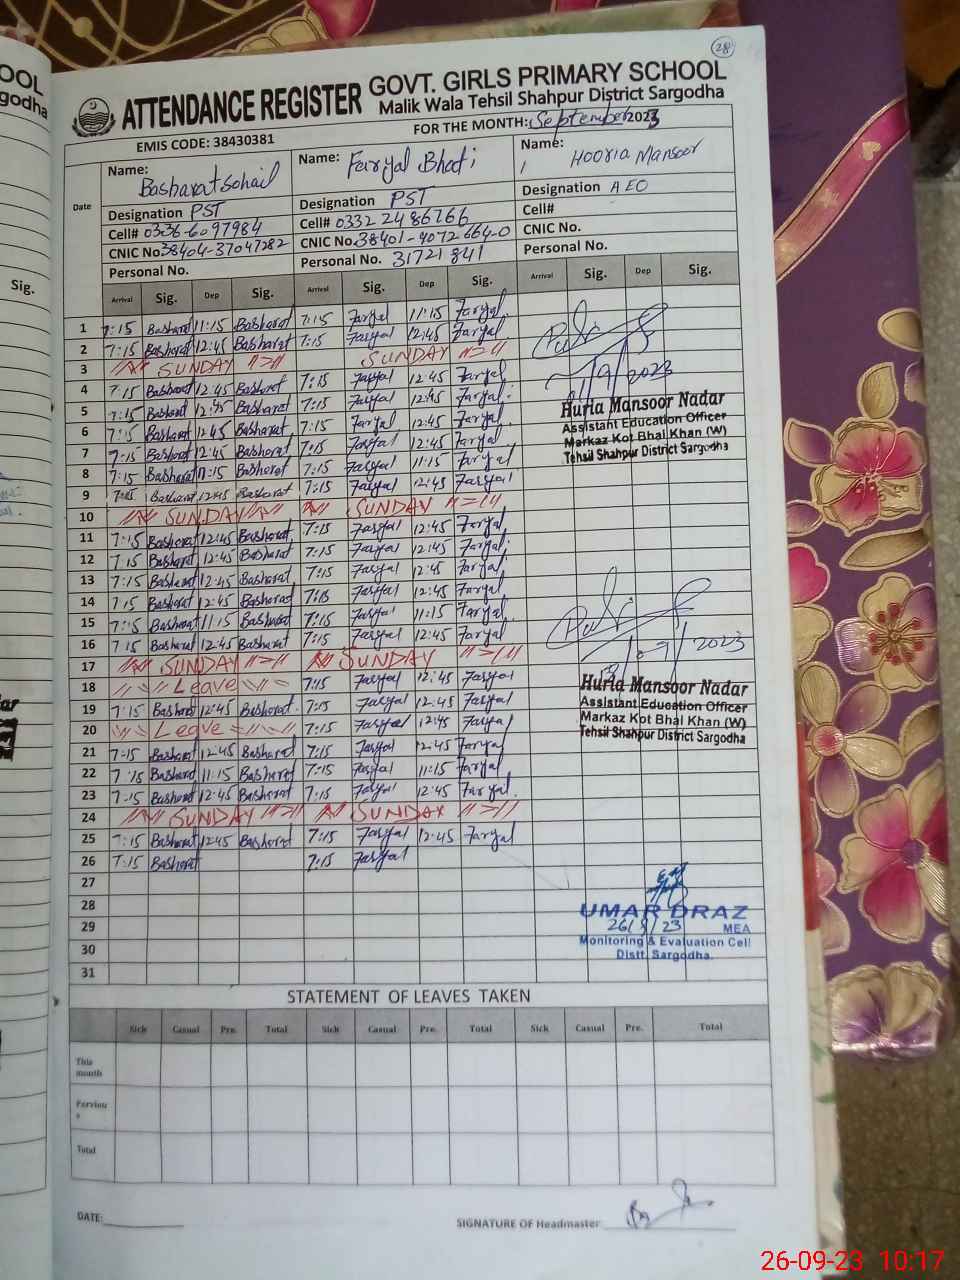 OOL
godha
Sig.
28
ATTENDANCE REGISTER GOVT. GIRLS PRIMARY SCHOOL
Malik Wala Tehsil Shahpur District Sargodha
EMIS CODE: 38430381 FOR THE MONTH: September 2023
Date Name: Basharat Sohail Name: Faryal Bhatti Name: Hooria Mansoor
Designation PST Designation PST Designation AEO
Cell# 0336-6097984 Cell# 0332 2486766 Cell#
CNIC No. 38404-37047282 CNIC No. 38401-4072664-0 CNIC No.
Personal No. Personal No. 31721841 Personal No.
Arrival Sig. Dep Sig. Arrival Sig. Dep Sig. Arrival Sig. Dep Sig.
1 7:15 Basharat 11:15 Basharat 7:15 Faryal 11:15 Faryal
2 7:15 Basharat 12:45 Basharat 7:15 Faryal 12:45 Faryal
3 SUNDAY SUNDAY
4 7:15 Basharat 12:45 Basharat 7:15 Faryal 12:45 Faryal
5 7:15 Basharat 12:45 Basharat 7:15 Faryal 12:45 Faryal
6 7:15 Basharat 12:45 Basharat 7:15 Faryal 12:45 Faryal
7 7:15 Basharat 12:45 Basharat 7:15 Faryal 12:45 Faryal
8 7:15 Basharat 11:15 Basharat 7:15 Faryal 11:15 Faryal
9 7:15 Basharat 12:45 Basharat 7:15 Faryal 12:45 Faryal
10 SUNDAY SUNDAY
11 7:15 Basharat 12:45 Basharat 7:15 Faryal 12:45 Faryal
12 7:15 Basharat 12:45 Basharat 7:15 Faryal 12:45 Faryal
13 7:15 Basharat 12:45 Basharat 7:15 Faryal 12:45 Faryal
14 7:15 Basharat 12:45 Basharat 7:15 Faryal 12:45 Faryal
15 7:15 Basharat 11:15 Basharat 7:15 Faryal 11:15 Faryal
16 7:15 Basharat 12:45 Basharat 7:15 Faryal 12:45 Faryal
17 SUNDAY SUNDAY
18 Leave 7:15 Faryal 12:45 Faryal
19 7:15 Basharat 12:45 Basharat 7:15 Faryal 12:45 Faryal
20 Leave 7:15 Faryal 12:45 Faryal
21 7:15 Basharat 12:45 Basharat 7:15 Faryal 12:45 Faryal
22 7:15 Basharat 11:15 Basharat 7:15 Faryal 11:15 Faryal
23 7:15 Basharat 12:45 Basharat 7:15 Faryal 12:45 Faryal
24 SUNDAY SUNDAY
25 7:15 Basharat 12:45 Basharat 7:15 Faryal 12:45 Faryal
26 7:15 Basharat 7:15 Faryal
27
28
29
30
31
2023
Huria Mansoor Nadar
Assistant Education Officer
Markaz Kot Bhai Khan (W)
Tehsil Shahpur District Sargodha
2023
Huria Mansoor Nadar
Assistant Education Officer
Markaz Kot Bhai Khan (W)
Tehsil Shahpur District Sargodha
UMAR DRAZ
26/9/23 MEA
Monitoring & Evaluation Cell
Distt. Sargodha.
STATEMENT OF LEAVES TAKEN
Sick Casual Pre. Total Sick Casual Pre. Total Sick Casual Pre. Total
This
month
Perviou
s
Total
DATE: SIGNATURE OF Headmaster
26-09-23 10:17